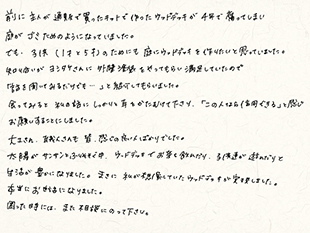 前に主人が通販で買ったキットで作ったウッドデッキが4年で腐ってしまい
庭がゴミだめのようになっていました。
でも、子供（1才と5才）のためにも庭にウッドデッキを作りたいと思っていました。
知り合いがヨシダヤさんに外壁塗装をやってもらい満足していたので
「話を聞いてみるだけでも…」と紹介してもらいました。
会ってみると私の話にしっかりと耳をかたむけて下さり、「この人なら信用できる」と感じ
お願いすることにしました。
大工さん、職人さんも皆、感じの良い人ばかりでした。
太陽がサンサンとふりそそぐ中、ウッドデッキでお茶を飲んだり、子供達が遊んだりと
生活が豊かになりました。まさに私が想像していたウッドデッキが実現しました。
本当にお世話になりました。
困った時には、また相談にのって下さい。